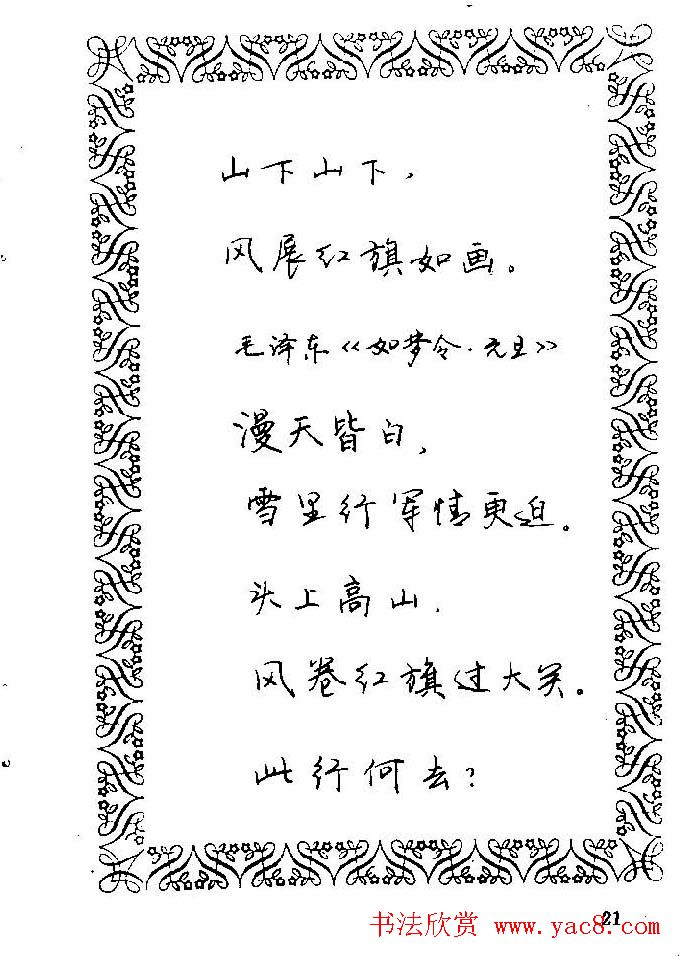 山下山下，
风展红旗如画。
毛泽东《如梦令·元旦》
漫天皆白，
雪里行军情更迫。
头上高山，
风卷红旗过大关。
此行何去？
21
书法欣赏 www.yac8.com